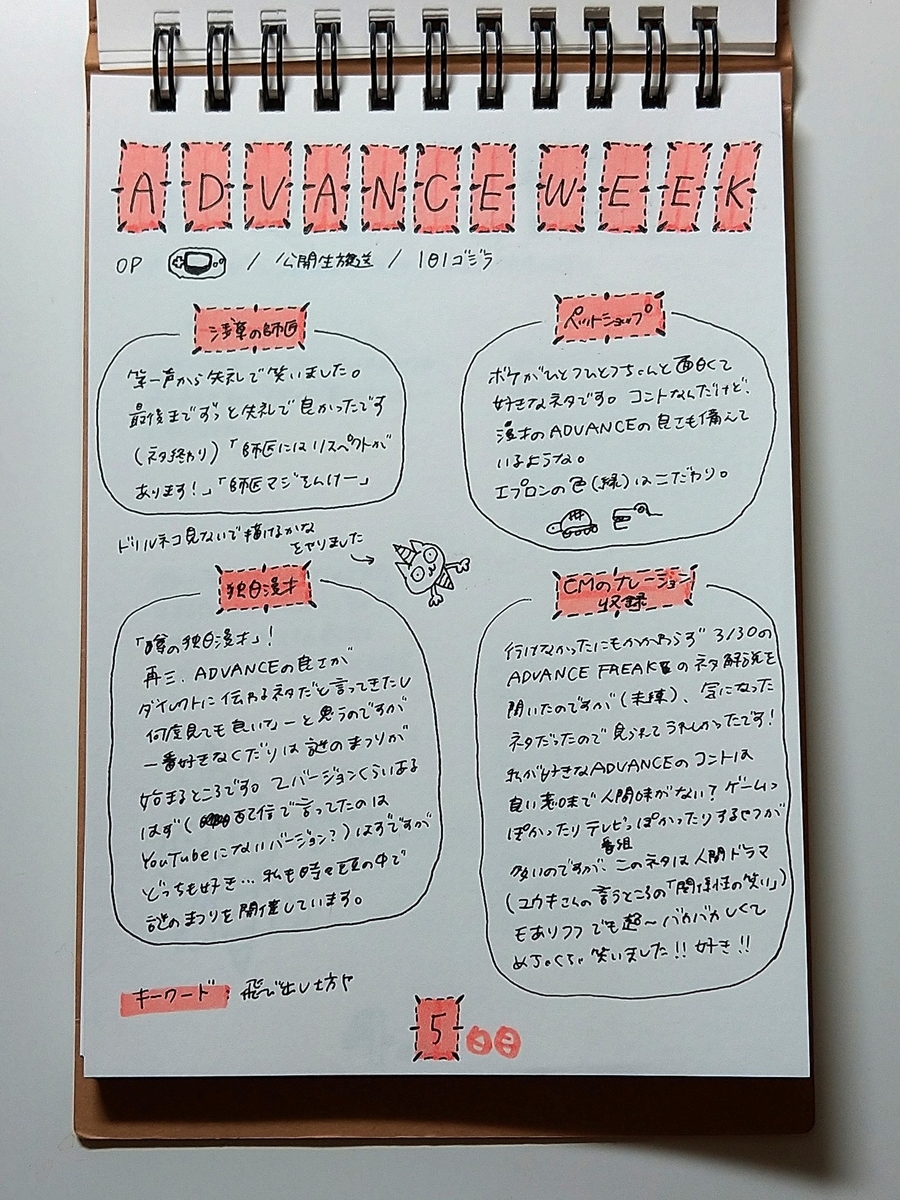 ADVANCE WEEK
OP / 公開生放送 / 101ゴジラ
浅草の師匠
第一声から失礼で笑いました。
最後までずっと失礼で良かったです
(ネタ終わり)「師匠にはリスペクトが
あります!」「師匠マジそんけー」
ペットショップ
ボケがひとつひとつちゃんと面白くて
好きなネタです。コントなんだけど、
漫才のADVANCEの良さも備えて
いるような。
エプロンの色(緑)はこだわり。
ドリルネコ見ないで描けるかな
をやりました
独白漫才
「噂の独白漫才」!
再三、ADVANCEの良さが
ダイレクトに伝わるネタだと言ってきたし
何度見ても良いなーと思うのですが
一番好きなくだりは謎のまつりが
始まるところです。2バージョンくらいある
はず(配信で言ってたのは
YouTubeにないバージョン?)はずですが
どっちも好き…私も時々頭の中で
謎のまつりを開催しています。
CMのナレーション
収録
行けなかったにもかかわらず3/30の
ADVANCE FREAKSのネタ解説を
聞いたのですが(未練)、気になった
ネタだったので見られてうれしかったです!
私が好きなADVANCEのコントは
良い意味で人間味がない?ゲームっ
ぽかったりテレビっぽかったりするやつが
番組
多いのですが、このネタは人間ドラマ
(ユウキさんの言うところの「関係性の笑い」)
もありつつでも超〜バカバカしくて
めちゃくちゃ笑いました!!好き!!
キーワード:飛び出し坊や
5